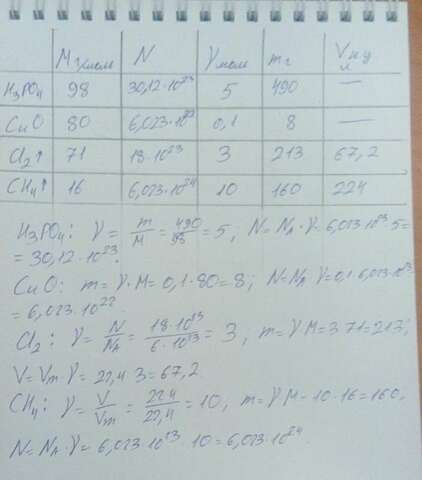 M г/моль N γ моль m г Vн.у л
H₃PO₄ 98 30,12·10²³ 5 490 —
CuO 80 6,023·10²² 0,1 8 —
Cl₂↑ 71 18·10²³ 3 213 67,2
CH₄↑ 16 6,023·10²⁴ 10 160 224
H₃PO₄: γ = m/M = 490/98 = 5; N = Nₐ·γ = 6,023·10²³·5 =
= 30,12·10²³.
CuO: m = γ·M = 0,1·80 = 8; N = Nₐ γ = 0,1·6,023·10²³
= 6,023·10²².
Cl₂: γ = N/Nₐ = 18·10²³/6·10²³ = 3; m = γ M = 3·71 = 213;
V = Vm·γ = 22,4·3 = 67,2
CH₄: γ = V/Vm = 224/22,4 = 10, m = γ M = 10·16 = 160,
N = Nₐ·γ = 6,023·10²³·10 = 6,023·10²⁴.